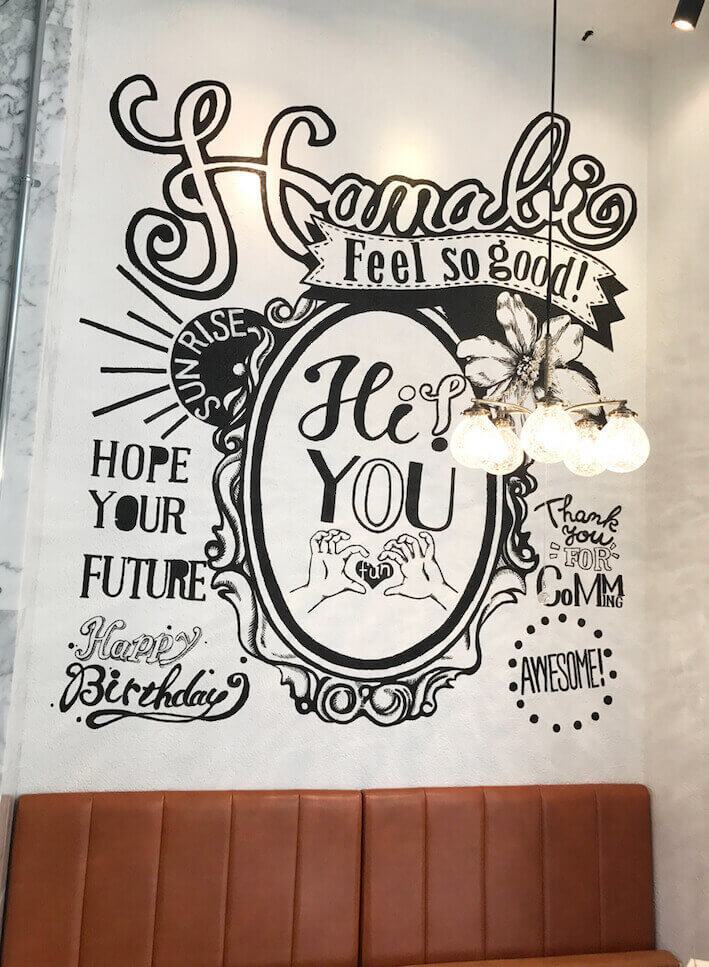 Hanabi
Feel so good!
SUNRISE
Hi!
YOU
fun
HOPE
YOUR
FUTURE
Happy
Birthday
Thank
you
FOR
CoMM
ING
AWESOME!